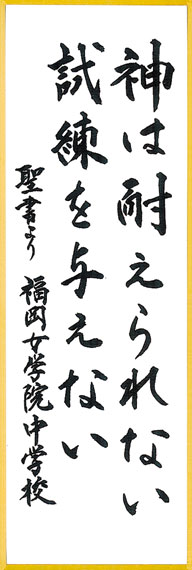 神は耐えられない
試練を与えない
聖書より 福岡女学院中学校